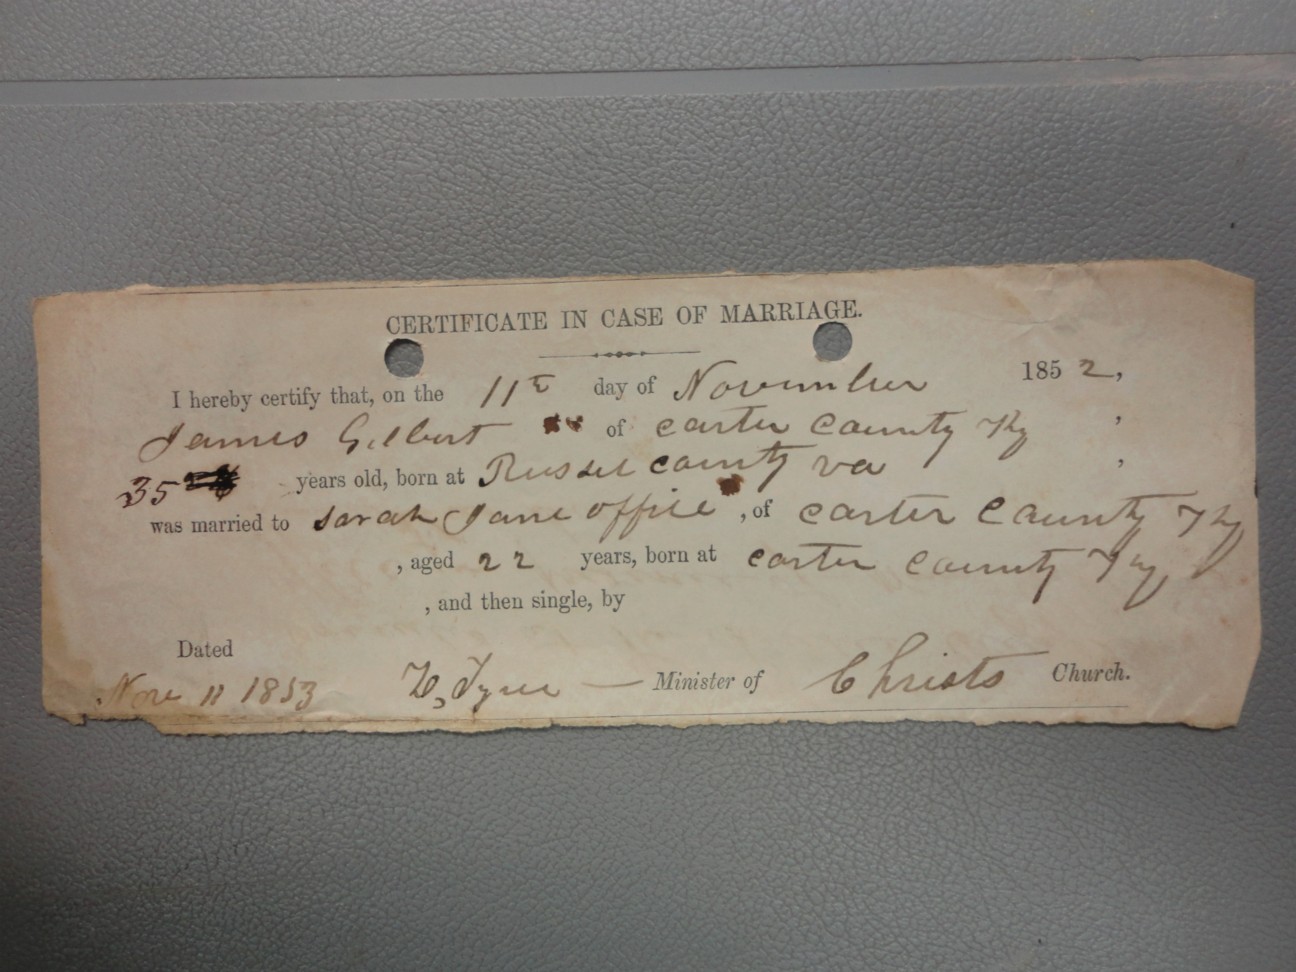 CERTIFICATE IN CASE OF MARRIAGE.
I hereby certify that, on the 11th day of November 1852,
James Gilbert of carter county Ky ,
35 years old, born at Russel county va ,
was married to Sarah Jane office , of carter county Ky
, aged 22 years, born at carter county Ky
, and then single, by
Dated
Nov 11 1853 Minister of Christs Church.